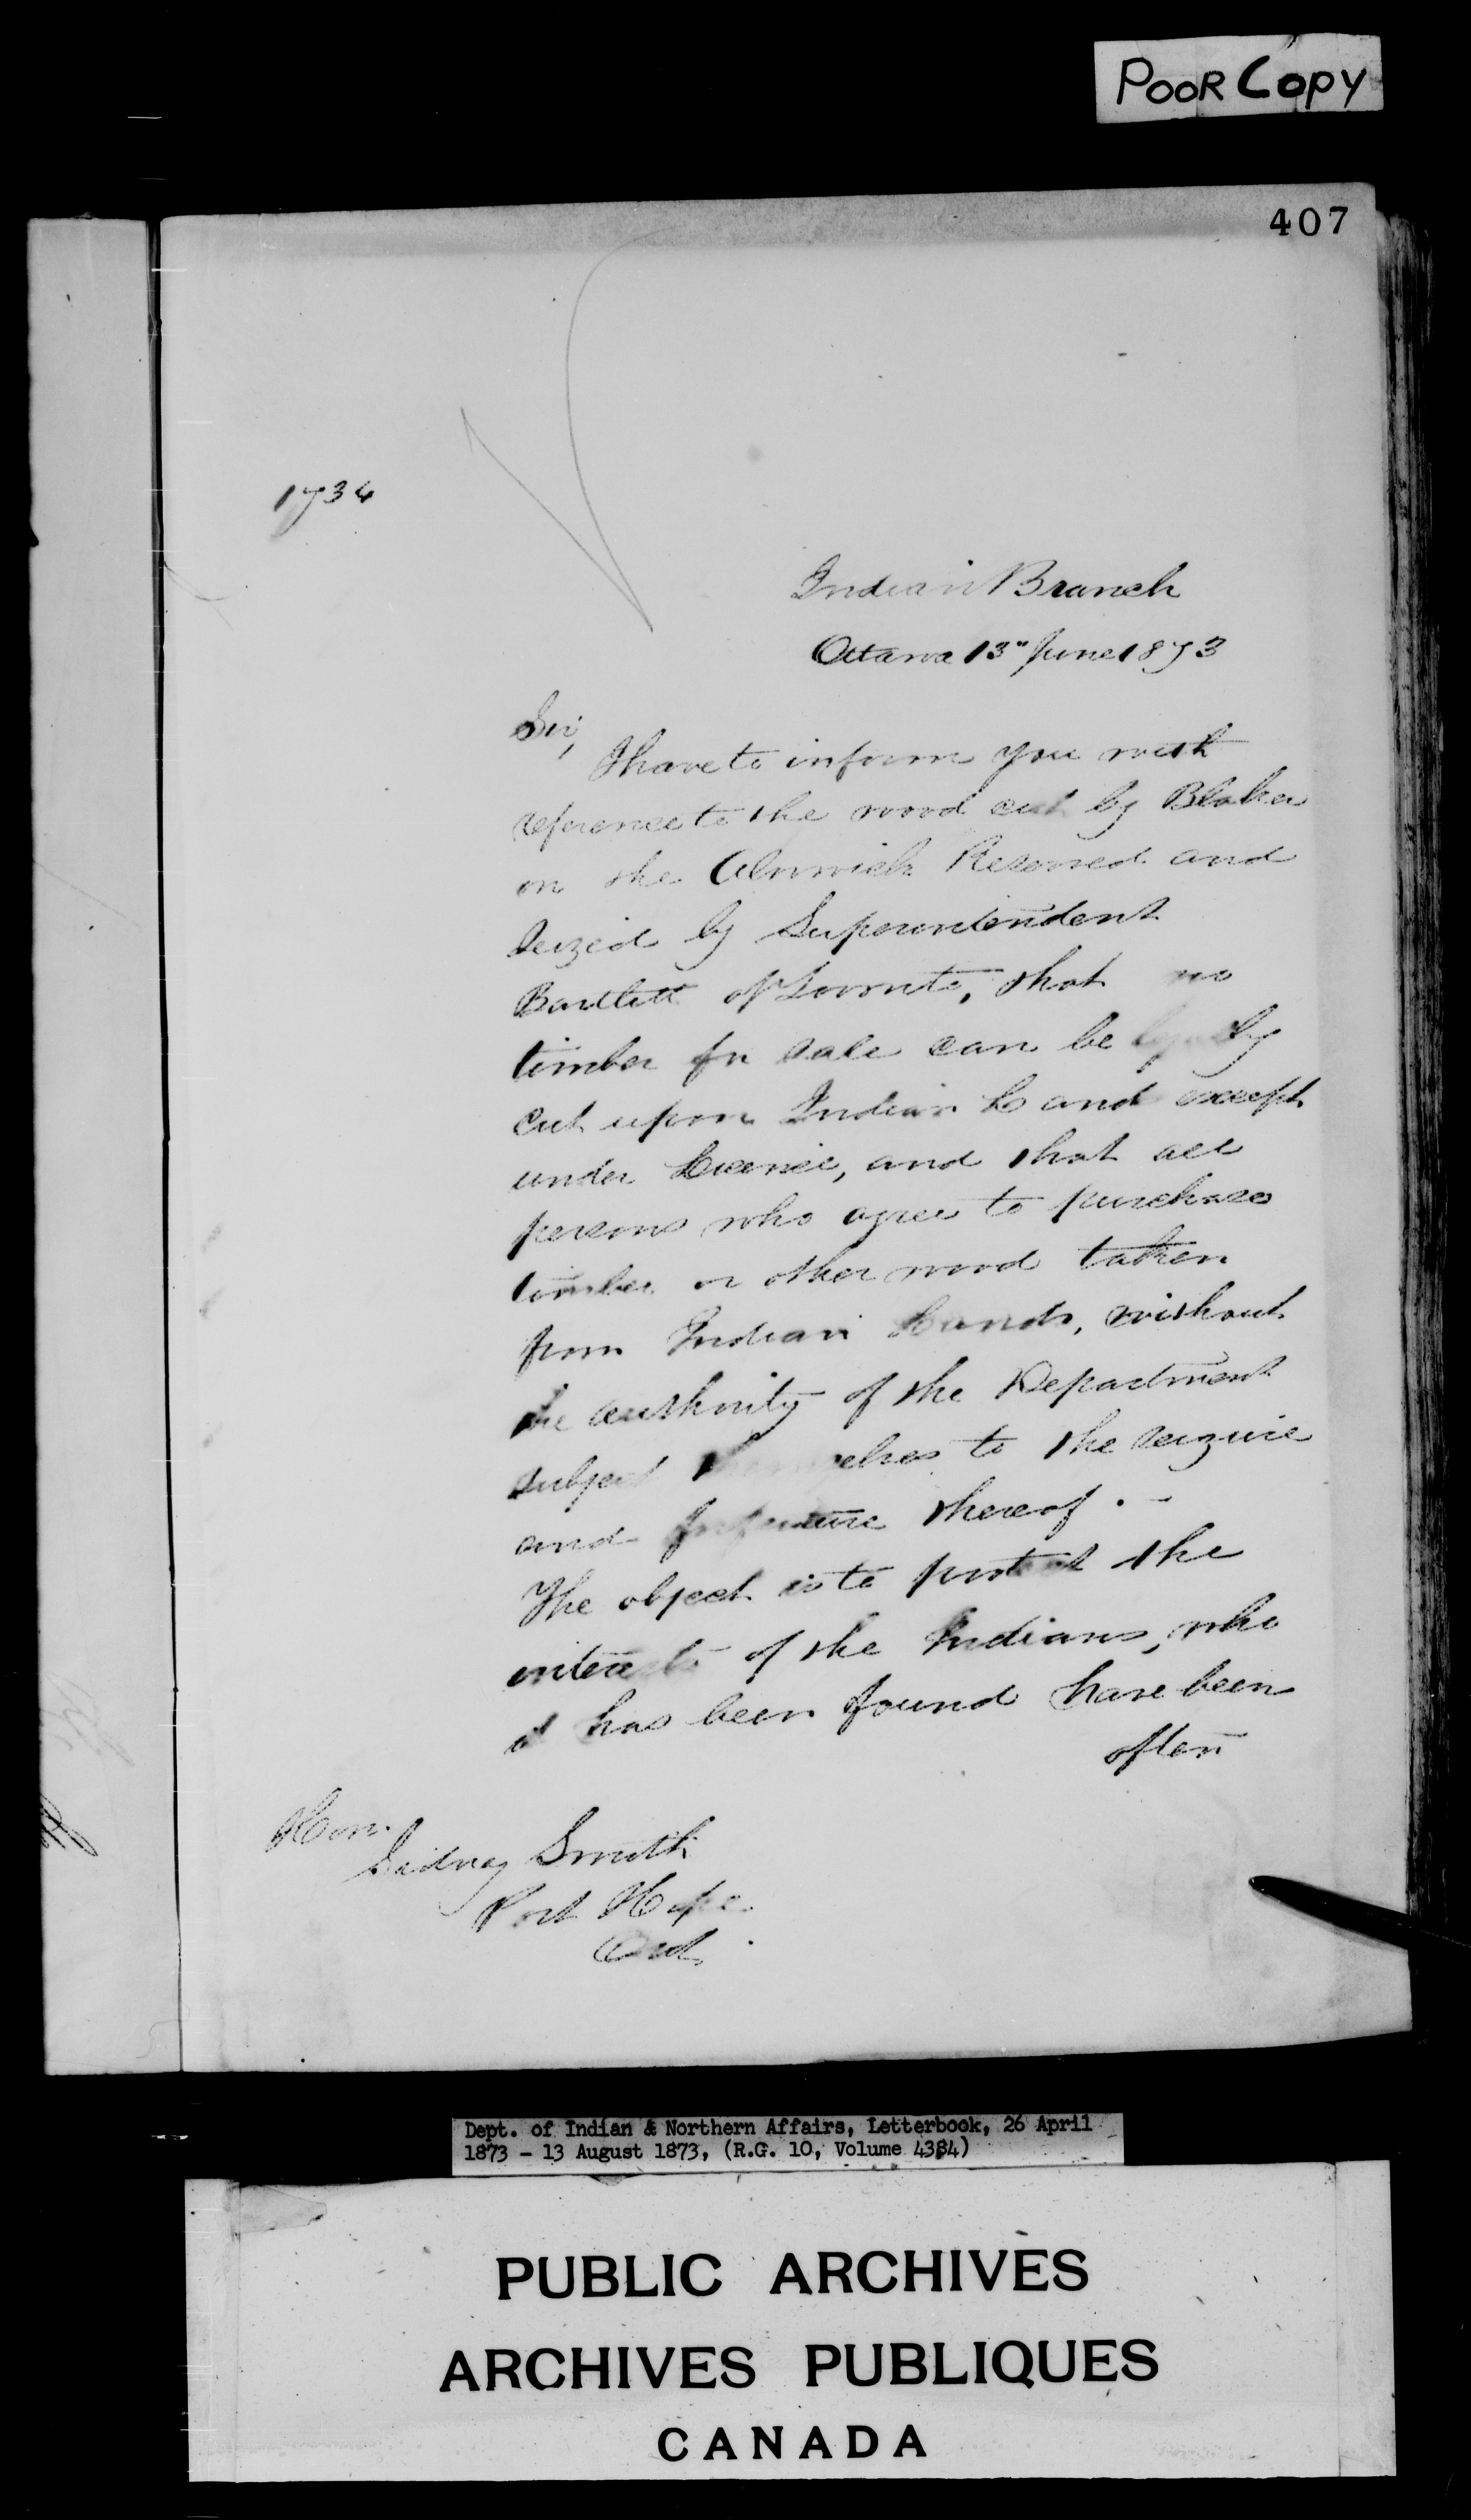 POOR COPY
407
1734
Indian Branch
Ottawa 13" June 1873
Sir,
I have to inform you with
reference to the wood cut by Blaker
on the Alnwick Reserved and
seized by Superintendent
Bartlett of Toronto, that no
timber for sale can be legally
cut upon Indian Land except
under License, and that all
persons who agree to purchase
timber or other wood taken
from Indian Lands, without
the authority of the Department
subject themselves to the seizure
and forfeiture thereof. -
The object is to protect the
interests of the Indians, who
it has been found have been
often
Hon.
Sidney Smith
Port Hope
Ont.
Dept. of Indian & Northern Affairs, Letterbook, 26 April
1873 - 13 August 1873, (R.G. 10, Volume 4384)
PUBLIC ARCHIVES
ARCHIVES PUBLIQUES
CANADA